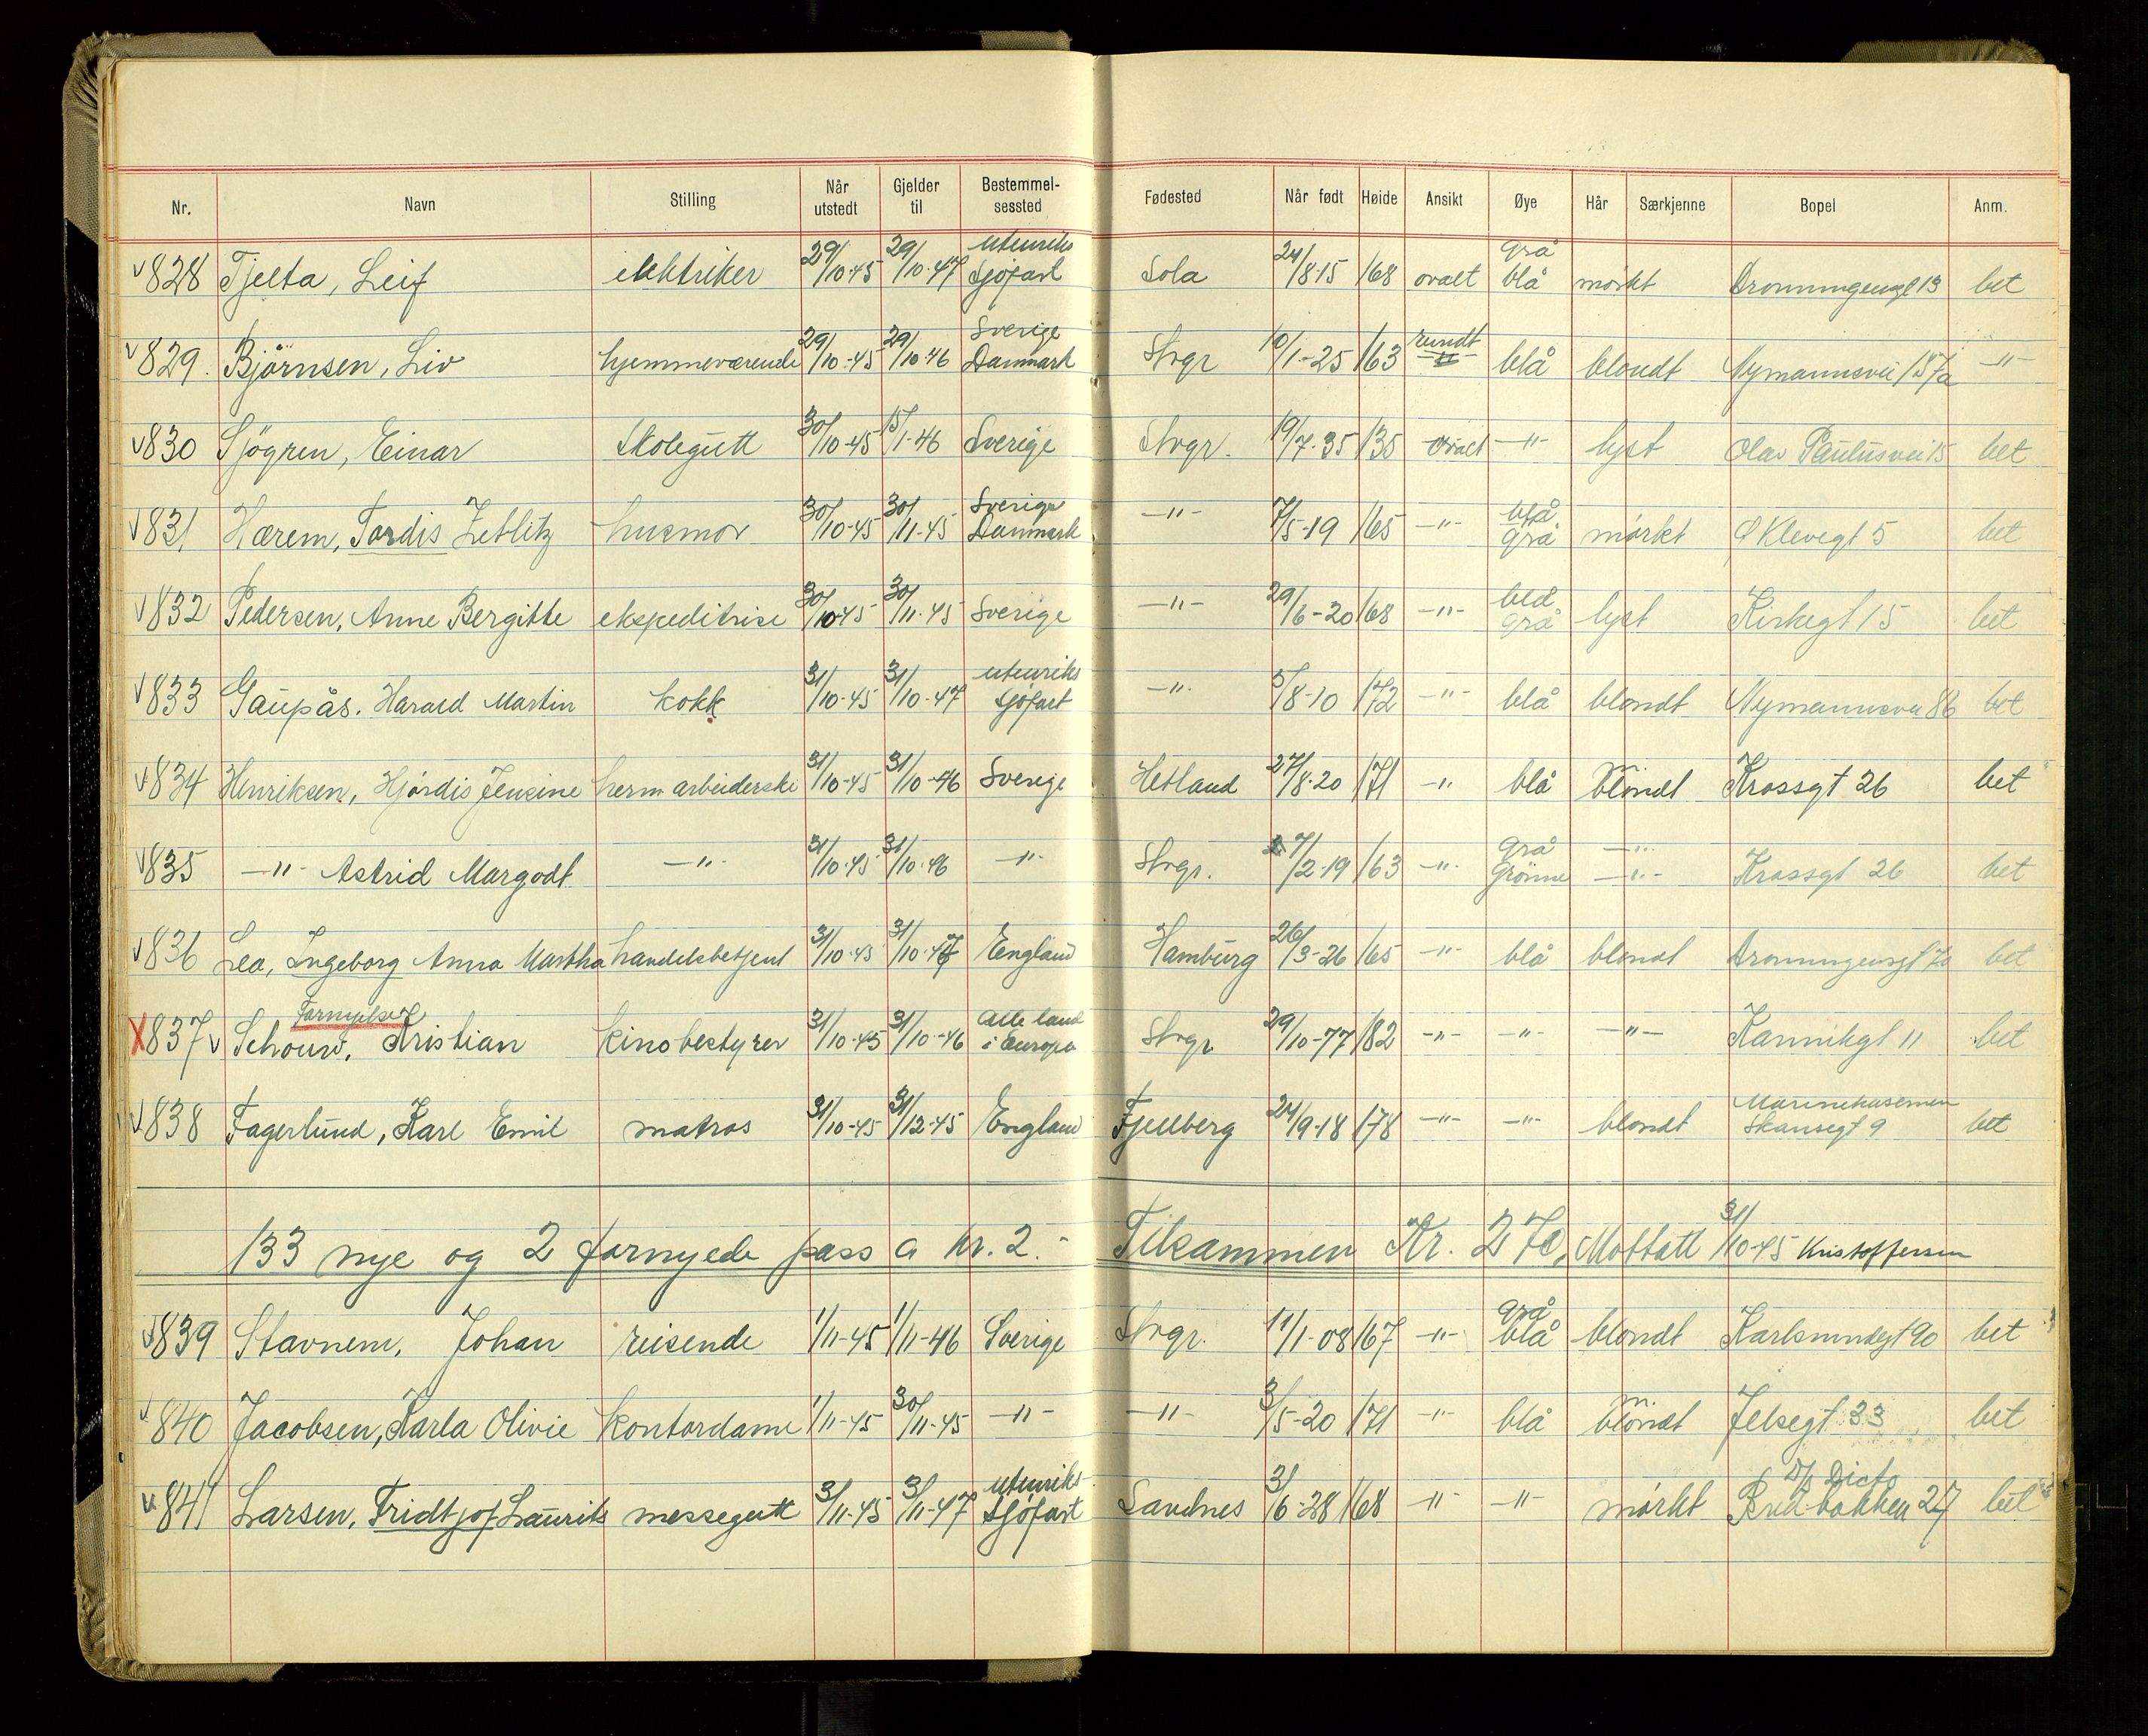 Nr. Navn Stilling Når utstedt Gjelder til Bestemmel-sessted Fødested Når født Høide Ansikt Øye Hår Særkjenne Bopel Anm.
828 Tjelta, Leif elektriker 29/10-45 29/10-47 utenriks sjøfart Sola 24/8-15 168 ovalt grå blå mørkt Dronningensgt 13 bet
829. Bjørnsen, Liv hjemmeværende 29/10-45 29/10-46 Sverige Danmark Stvgr 10/1-25 163 rundt blå blondt Nymannsvei 157a -"-
830 Sjögren, Einar skolegutt 30/10-45 15/1-46 Sverige Stvgr. 19/7-35 135 ovalt -"- lyst Olav Paulusvei 15 bet
831 Hærem, Tordis Zetlitz husmor 30/10-45 30/11-45 Sverige Danmark -"- 7/5-19 165 -"- blå grå mørkt Ø Klevegt 5 bet
832 Pedersen, Anne Bergitte ekspeditrise 30/10-45 30/11-45 Sverige -"- 29/6-20 168 -"- blå grå lyst Kirkegt 15 bet
833 Gaupås. Harald Martin kokk 31/10-45 31/10-47 utenriks sjøfart -"- 5/8-10 172 -"- blå blondt Nymannsvei 86 bet
834 Henriksen, Hjørdis Jensine herm arbeiderske 31/10-45 31/10-46 Sverige Hetland 27/8-20 171 -"- blå m. blondt Krossgt 26 bet
835 -"- Astrid Margodt -"- 31/10-45 31/10-46 -"- Stvgr. 7/2-19 163 -"- grå grønne -"- -"- Krossgt 26 bet
836 Lea, Ingeborg Anna Martha handelsbetjent 31/10-45 31/10-47 England Hamburg 26/3-26 165 -"- blå blondt Dronningensgt 70 bet
X 837 Fornyelse Schouw, Kristian kinobestyrer 31/10-45 31/10-46 alle land i Europa Stvgr 29/10-77 182 -"- -"- -"- Kannikgt 11 bet
838 Fagerlund, Karl Emil matros 31/10-45 31/12-45 England Fjelberg 24/9-18 178 -"- -"- blondt Marinekasernen Skansegt 9 bet
133 nye og 2 fornyede pass a kr. 2.- Tilsammen Kr. 270, Mottatt 31/10-45 Kristoffersen
839 Stavnem, Johan reisende 1/11-45 1/11-46 Sverige Stvgr. 11/1-08 167 -"- grå blå blondt Karlsmindegt 90 bet
840 Jacobsen, Karla Olivie kontordame 1/11-45 30/11-45 -"- -"- 3/5-20 171 -"- blå m. blondt Jelsegt 33 bet
841 Larsen, Fridtjof Laurits messegutt 3/11-45 3/11-47 utenriks sjøfart Sandnes 3/6-28 168 -"- -"- mørkt D/S Dicto 27 bet